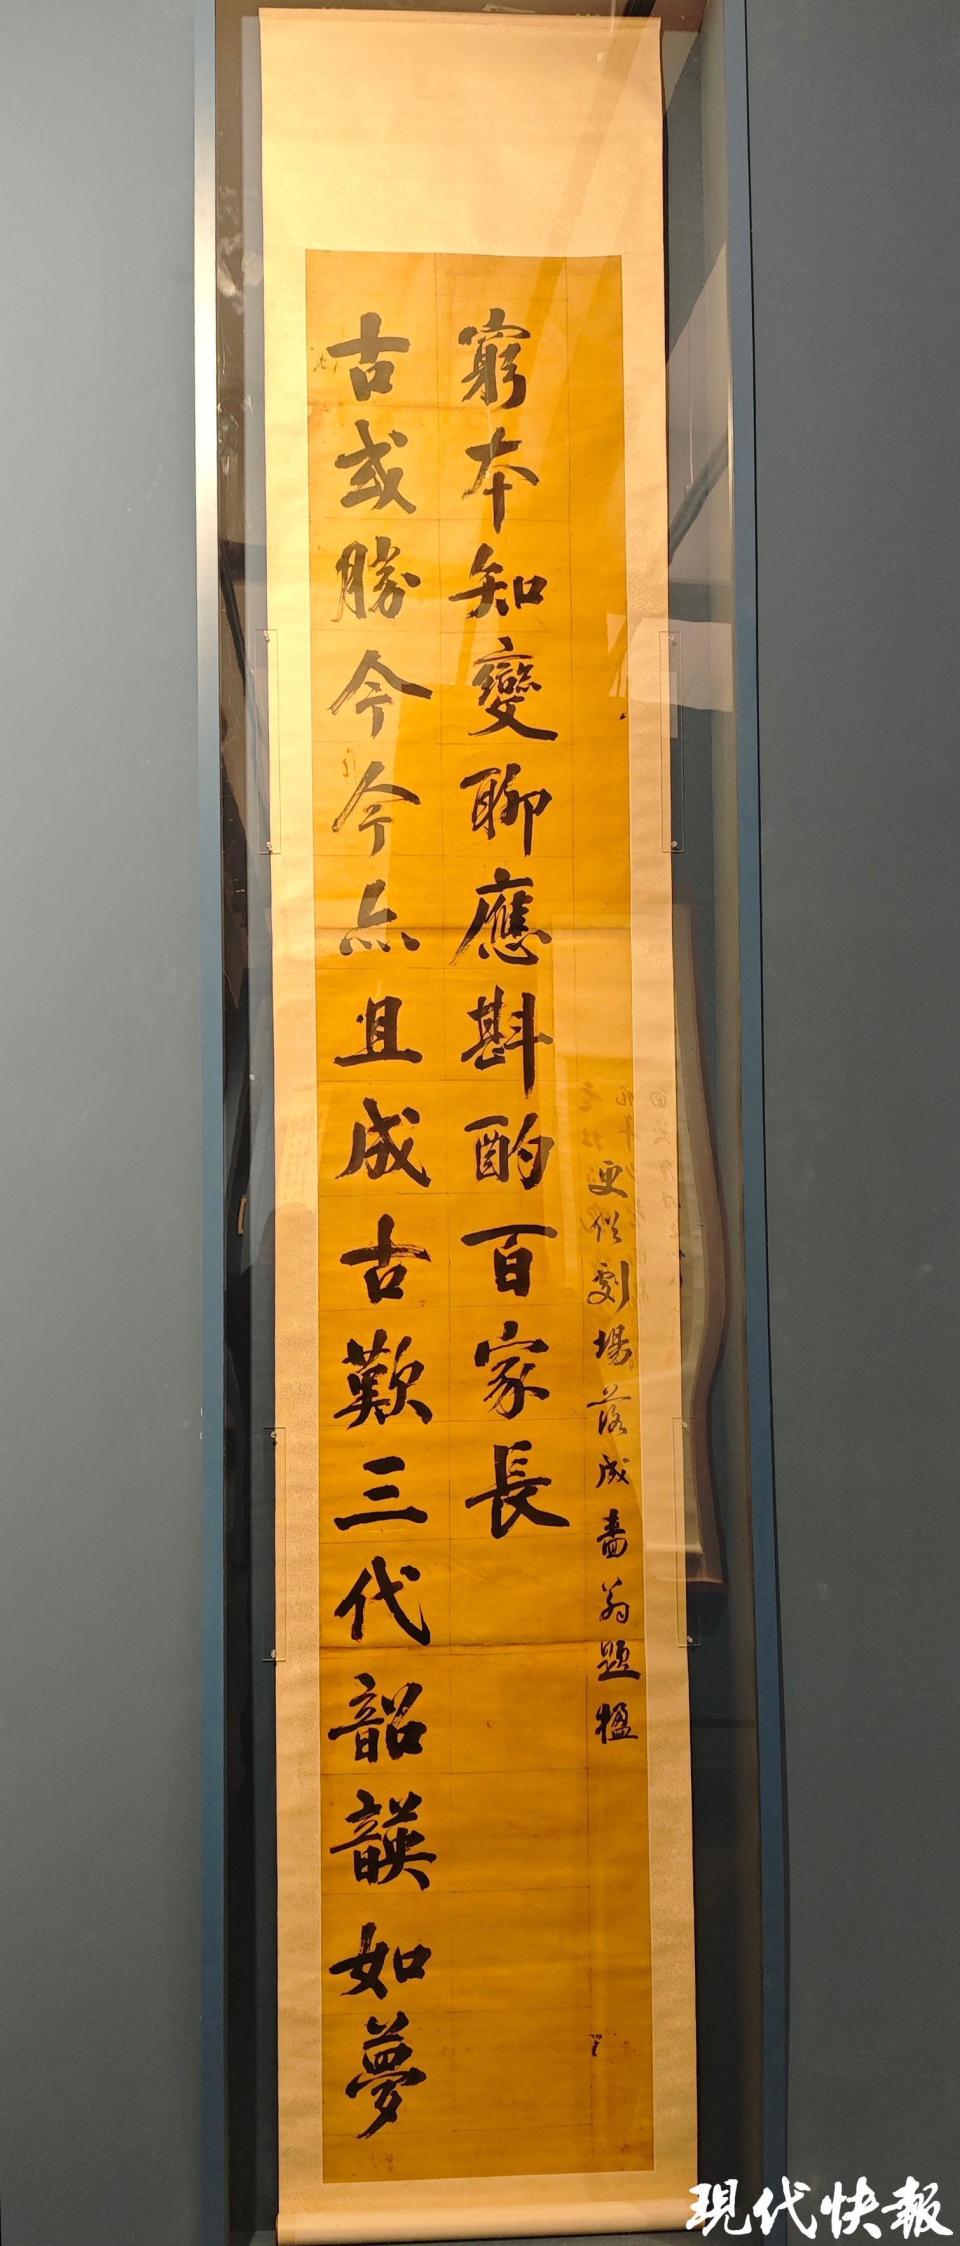 古或勝今今亦且成古歎三代韶韺如夢
窮本知變聊應斟酌百家長
更俗劇場落成嗇翁題楹
現代快報